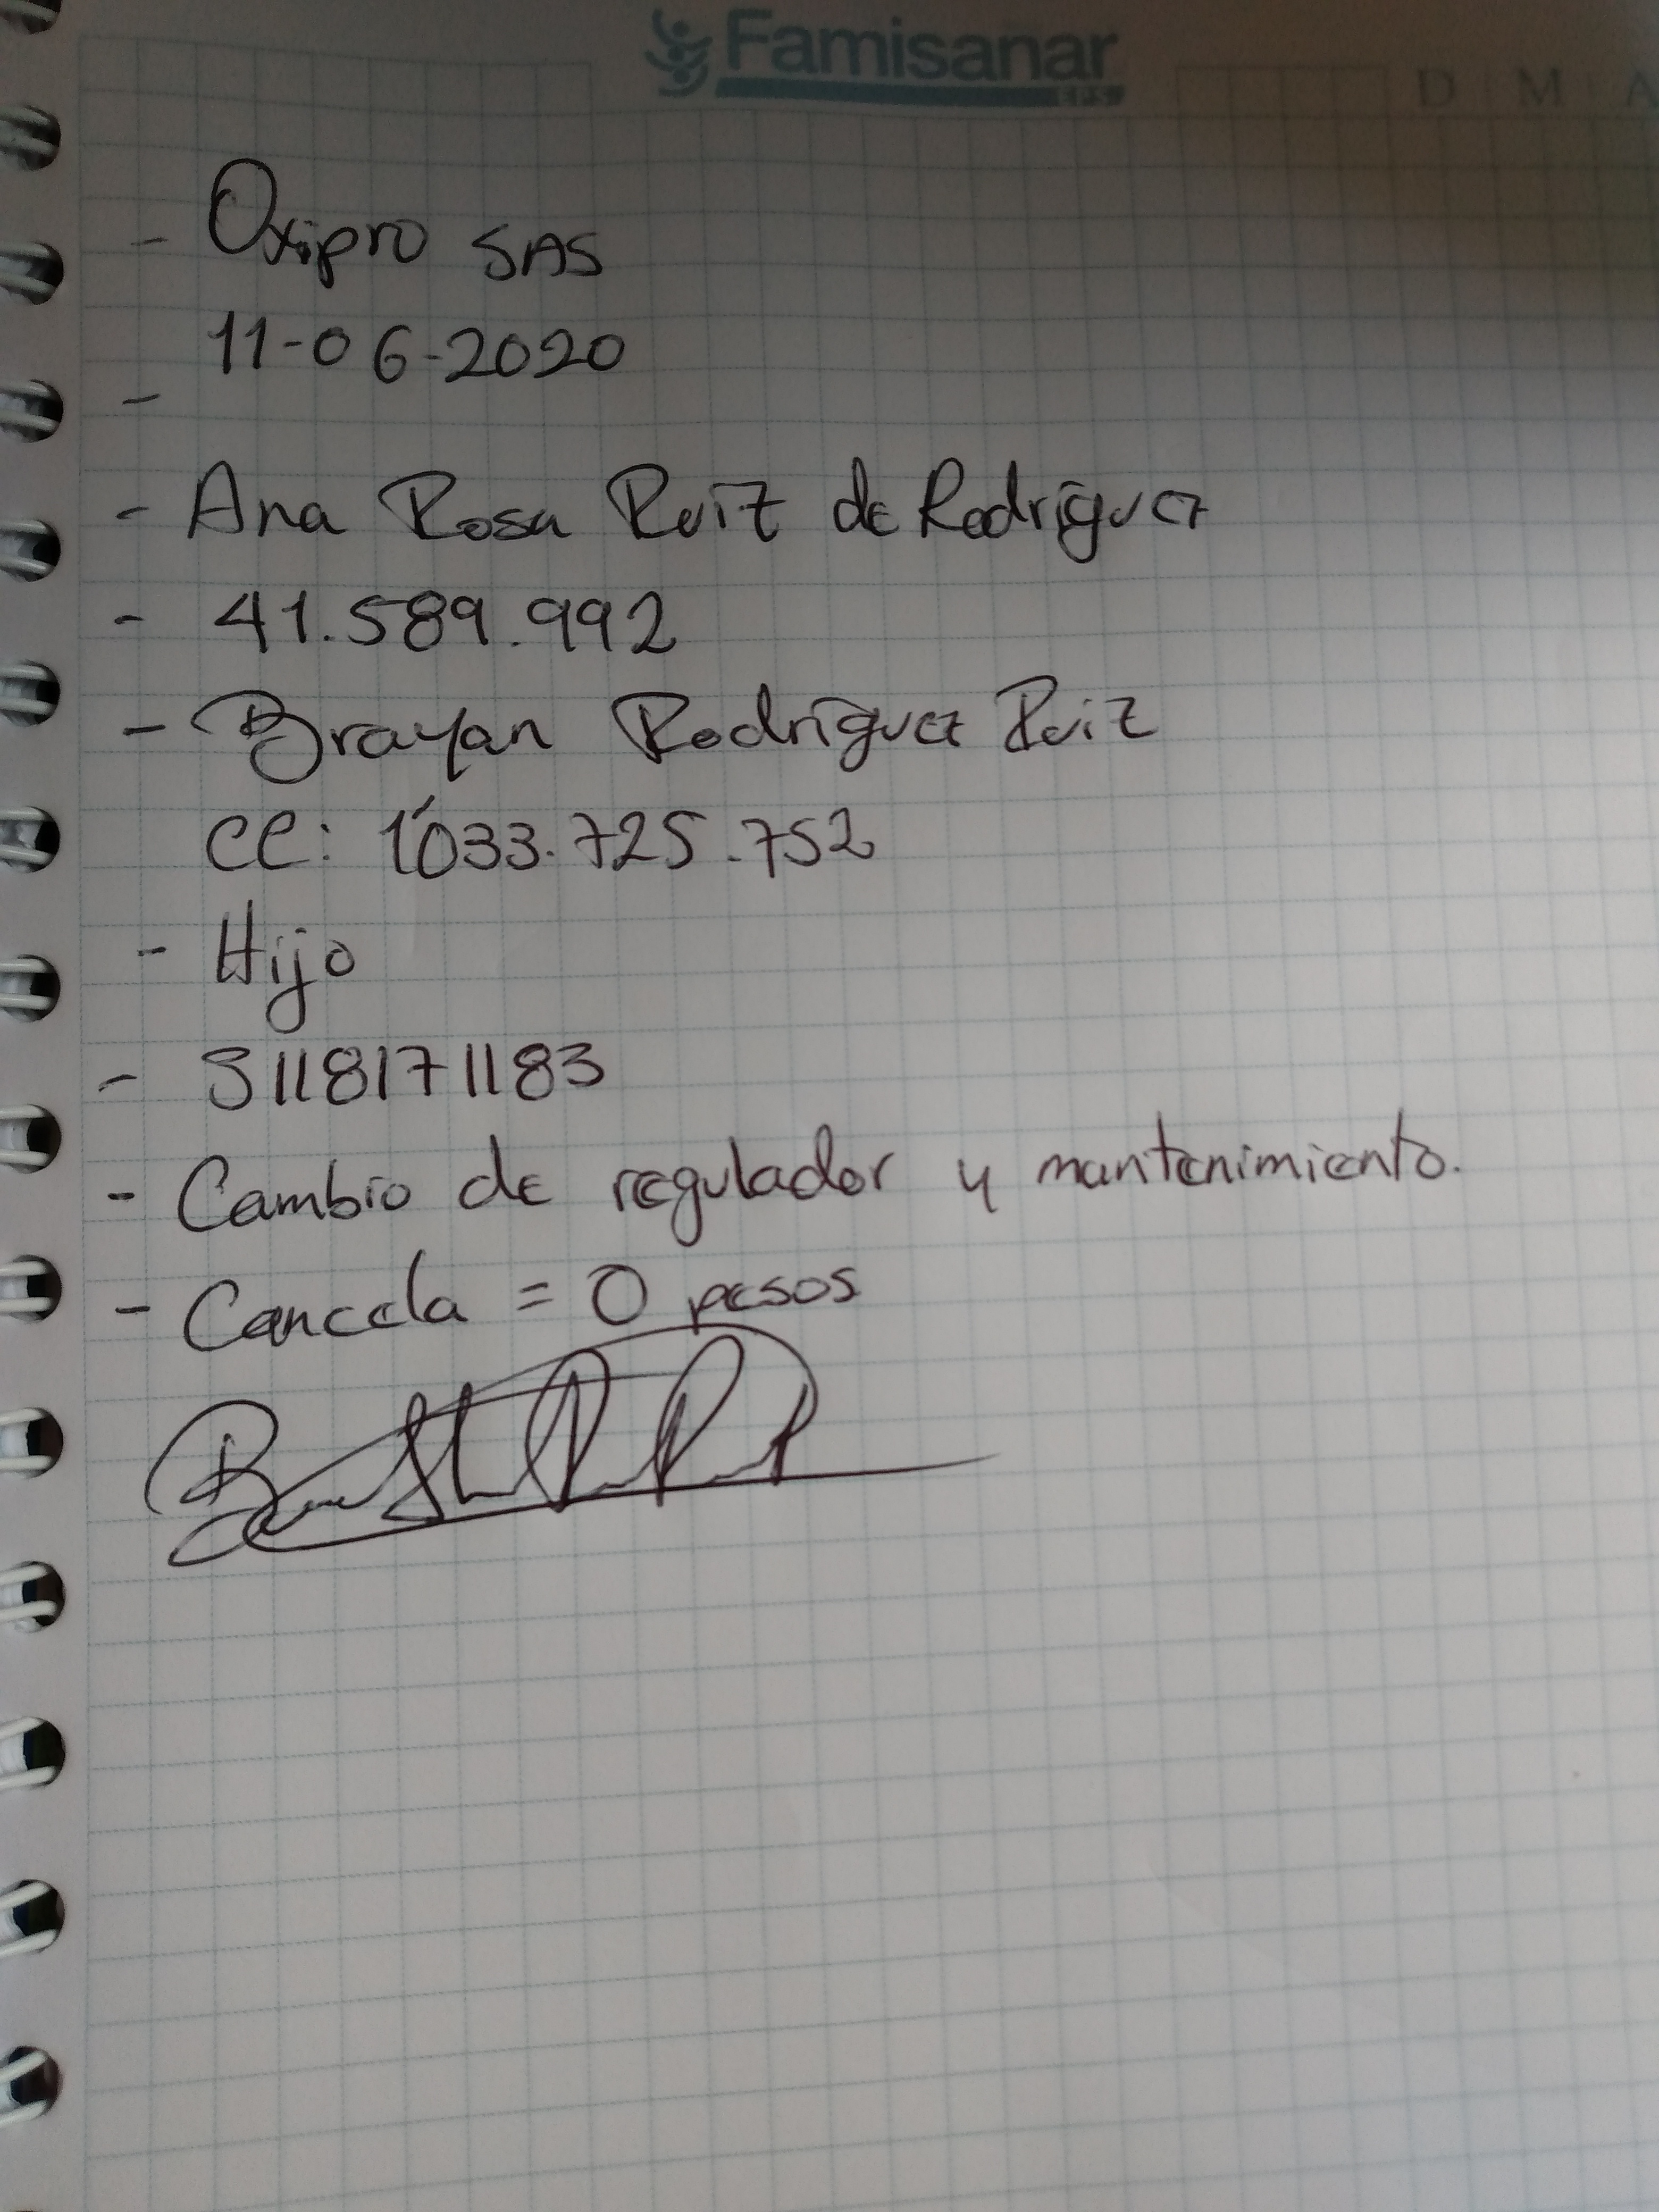 Famisanar
EPS
D M A
- Oxipro SAS
11-06-2020
-
- Ana Rosa Ruiz de Rodríguez
- 41.589.992
- Brayan Rodríguez Ruiz
CC: 1'033.725.752
- Hijo
- 3118171183
- Cambio de regulador y mantenimiento.
- Cancela = 0 pesos